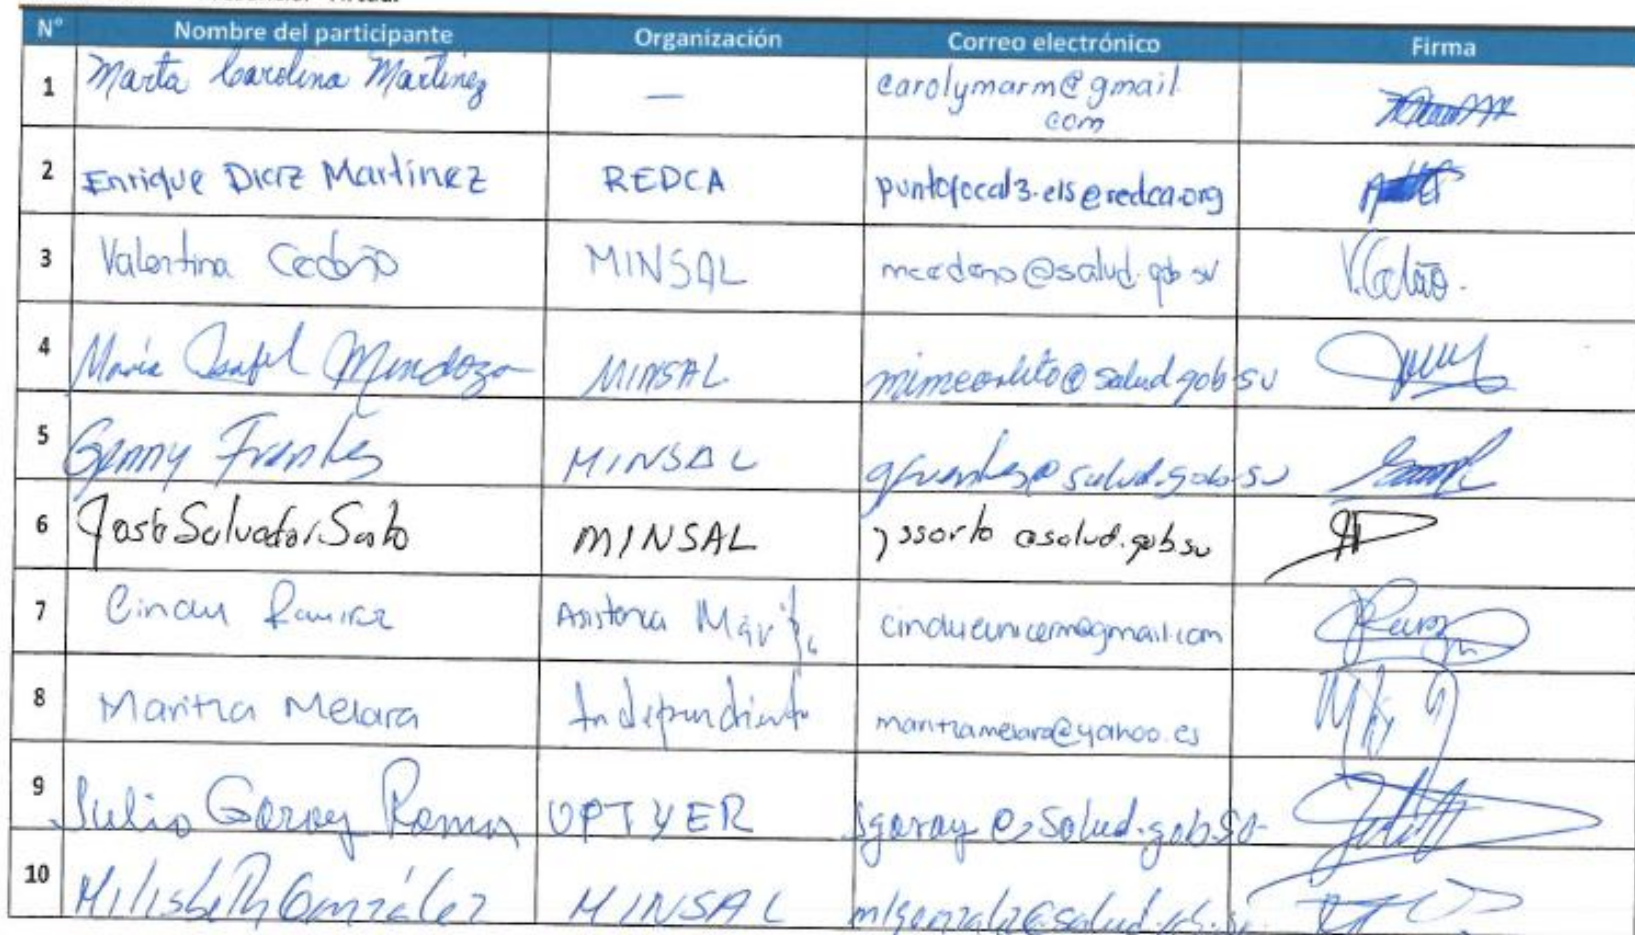 N° Nombre del participante Organización Correo electrónico Firma
1 Marta Carolina Martínez — carolymarm@gmail.
com
2 Enrique Diaz Martínez REDCA puntofocal3.els@redca.org
3 Valentina Cedeño MINSAL mcedeno@salud.gob.sv V.Cedeño.
4 María Isabel Mendoza MINSAL @salud.gob.sv
5 Genny Fuentes MINSAL gfuentes@salud.gob.sv
6 José Salvador Sorto MINSAL jssorto @salud.gob.sv
7 Cindy Ramirez
8 Maritza Melara Independiente maritzamelara@yahoo.es
9 Julio Garay Ramos UPTYER jgaray@salud.gob.sv
10 Milisbeth González MINSAL